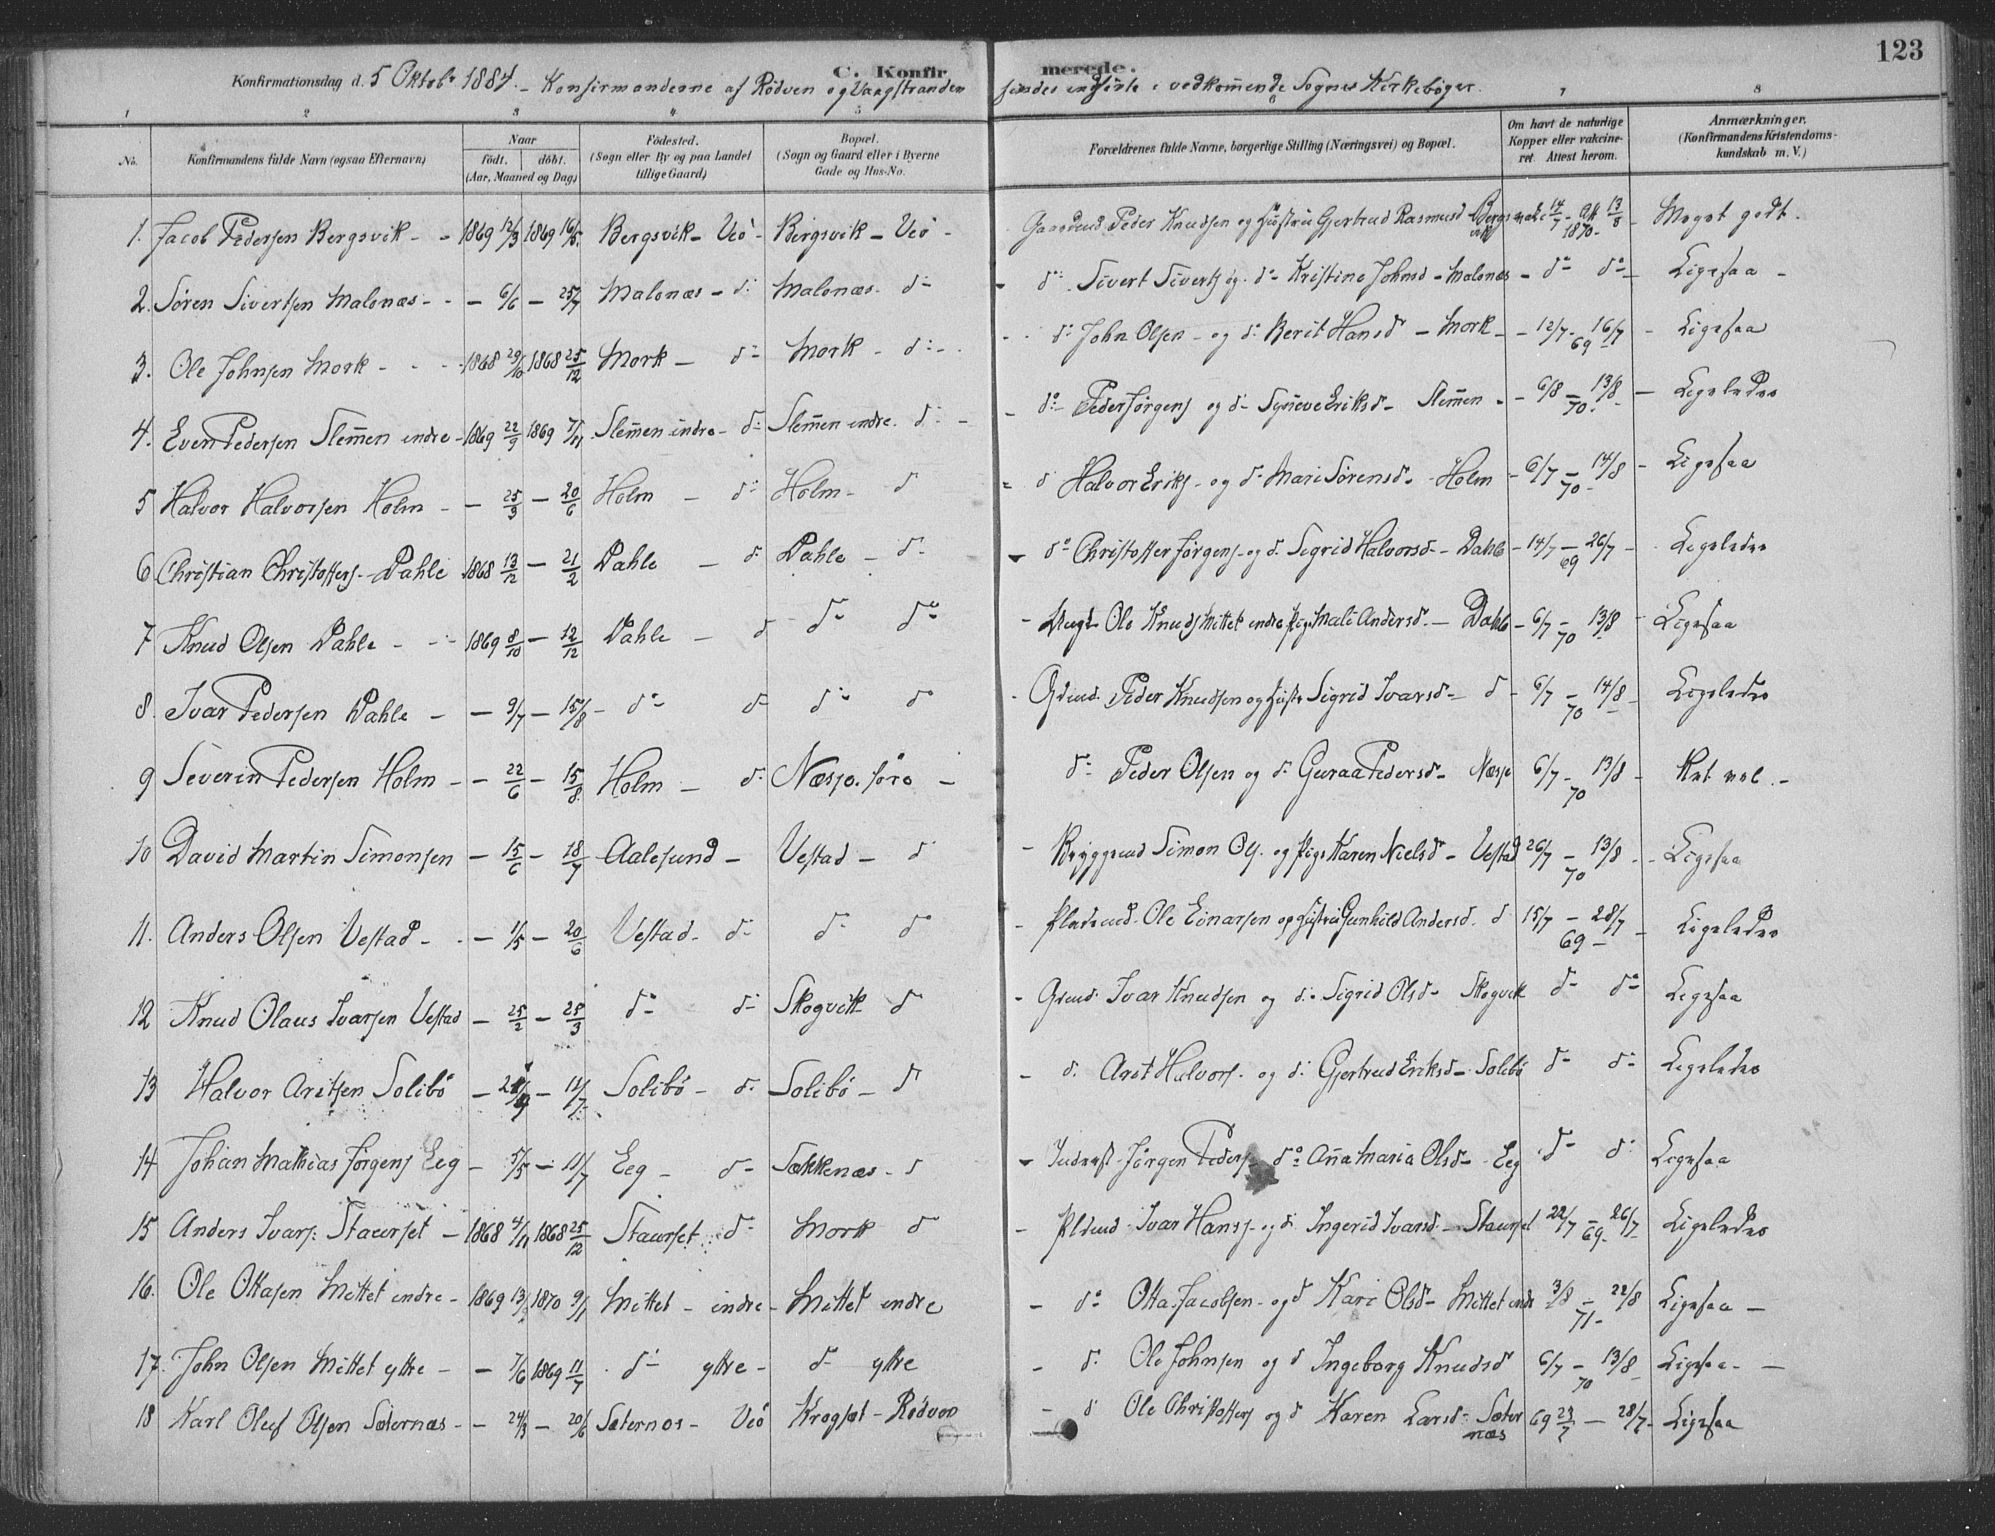 123
C. Konfirmerede.
Konfirmationsdag d. 5 Oktob. 1884. - Konfirmanderne af Rödven og Vaagstranden findes indførte i vedkommende Sognes Kirkebøger.
1 2 3 4 5 6 7 8
No. Konfirmandens fulde Navn (ogsaa Efternavn) Naar födt. döbt. (Aar, Maaned og Dag) Födested. (Sogn eller By og paa Landet tillige Gaard) Bopæl. (Sogn og Gaard eller i Byerne Gade og Hus-No. Forældrenes fulde Navne, borgerlige Stilling (Næringsvei) og Bopæl. Om havt de naturlige Kopper eller vakcineret. Attest herom. Anmærkninger. (Konfirmandens Kristendomskundskab m. V.)
1. Jacob Pedersen Bergsvik - - 1869 12/3 1869 16/5. Bergsvik - Veö - Bergsvik - Veö - Gaardmd Peder Knudsen og Hustru Gjertrud Rasmusd Bergsvik 14/7 1870 13/8 - Meget godt.
2. Søren Sivertsen Malonæs - - - 6/6 - 25/7 Malonæs - do Malonæs - do - do Sivert Siverts og do Kristine Johnsd - Malonæs - do do - Ligesaa -
3. Ole Johnsen Mork - - - 1868 29/10 1868 25/12 Mork - do Mork - do - - do John Olsen - og do Berit Hansd - Mork - - 12/7 - 16/7 69 - Ligesaa
4. Even Pedersen Slem̄en indre - 1869 22/9 1869 7/11 Slem̄en indre - do Slem̄en indre. do - - do Peder Jørgens og do Syneve Eriksd - Slem̄en - - 6/8 - 13/8 70 - Ligeledes
5 Halvor Halvorsen Holm - - 25/3 - 20/6 Holm - do Holm - do - do Halvor Eriks - og do Mari Sørensd - Holm - 6/7 - 14/8 70 - Ligesaa
6 Christian Christoffers - Dahle 1868 13/12 - 21/2 Dahle - do Dahle - do - do Christoffer Jørgens - og do Sigrid Halvorsd - Dahle - 14/7 - 26/7 69 - Ligeledes
7 Knud Olsen Dahle - - 1869 8/10 - 12/12 Dahle - do do do - Ungk Ole Knuds Mittet indre Pige Mali Andersd. - Dahle - 6/7 - 13/8 70 - Ligesaa
8. Ivar Pedersen Dahle - - 9/7 - 15/8 - do do do do - Grdmd. Peder Knudsen og Hustr Sigrid Ivarsd - do - 6/7 - 14/8 70 - Ligeledes
9 Severin Pedersen Holm - - 22/6 - 15/8 Holm - do Næsje, søre - do Peder Olsen og do Guraa Pedersd - Næsje 6/7 - 13/8 70 - Ret vel. -
10 David Martin Simonsen - 15/6 - 18/7 Aalesund - Vestad - do - Bryggemd Simon Ols. og Pige Karen Nielsd - Vestad 26/7 - 13/8 70 - Ligesaa
11. Anders Olsen Vestad - - - 1/5 - 20/6 Vestad - do do do - Pladsmd. Ole Einarsen og Hustru Gunhild Andersd. do 15/7 - 28/7 69 - Ligeledes
12 Knud Olaus Ivarsen Vestad - 25/2 - 25/3 do do Skogvik do - Grdmd. Ivar Knudsen og do Sigrid Olsd - Skogvik do do Ligesaa
13 Halvor Aritsen Solibö - - 11/7 Solibö - do Solibö - do - do Arit Halvors. og do Gjertrud Eriksd - Solibö do do Ligeledes
14 Johan Mathias Jørgens Eeg - 5/5 - 11/7 Eeg - do Sækkenæs - do - Inderst Jørgen Peders do An̄a Maria Olsd - Eeg do do Ligesaa
15 Anders Ivars: Staurset - 1868 4/11 1868 25/12 Staurset do Mork do - Pldmd Ivar Hans - og do Ingerid Ivarsd - Staurset 22/7 - 26/7 69 - Ligeledes
16. Ole Ottasen Mittet indre - 1869 1870 9/1 Mittet - indre - Mittet indre - do Otta Jacobsen - og do Kari Olsd - Mittet indr 3/8 - 22/8 71 - Ligesaa -
17. John Olsen Mittet ytre - - 7/6 1869 11/7 do ytre - do ytre - do Ole Johnsen og do Ingeborg Knudsd 6/7 - 13/8 70 Ligesaa - -
18 Karl Oluf Olsen Sæternæs - - 24/3 - 20/6 Sæternæs - Veö Krogset - Rødven - do Ole Christoffers og do Karen Larsd - Sæternæs 69 23/7 - 28/7 - Ligesaa